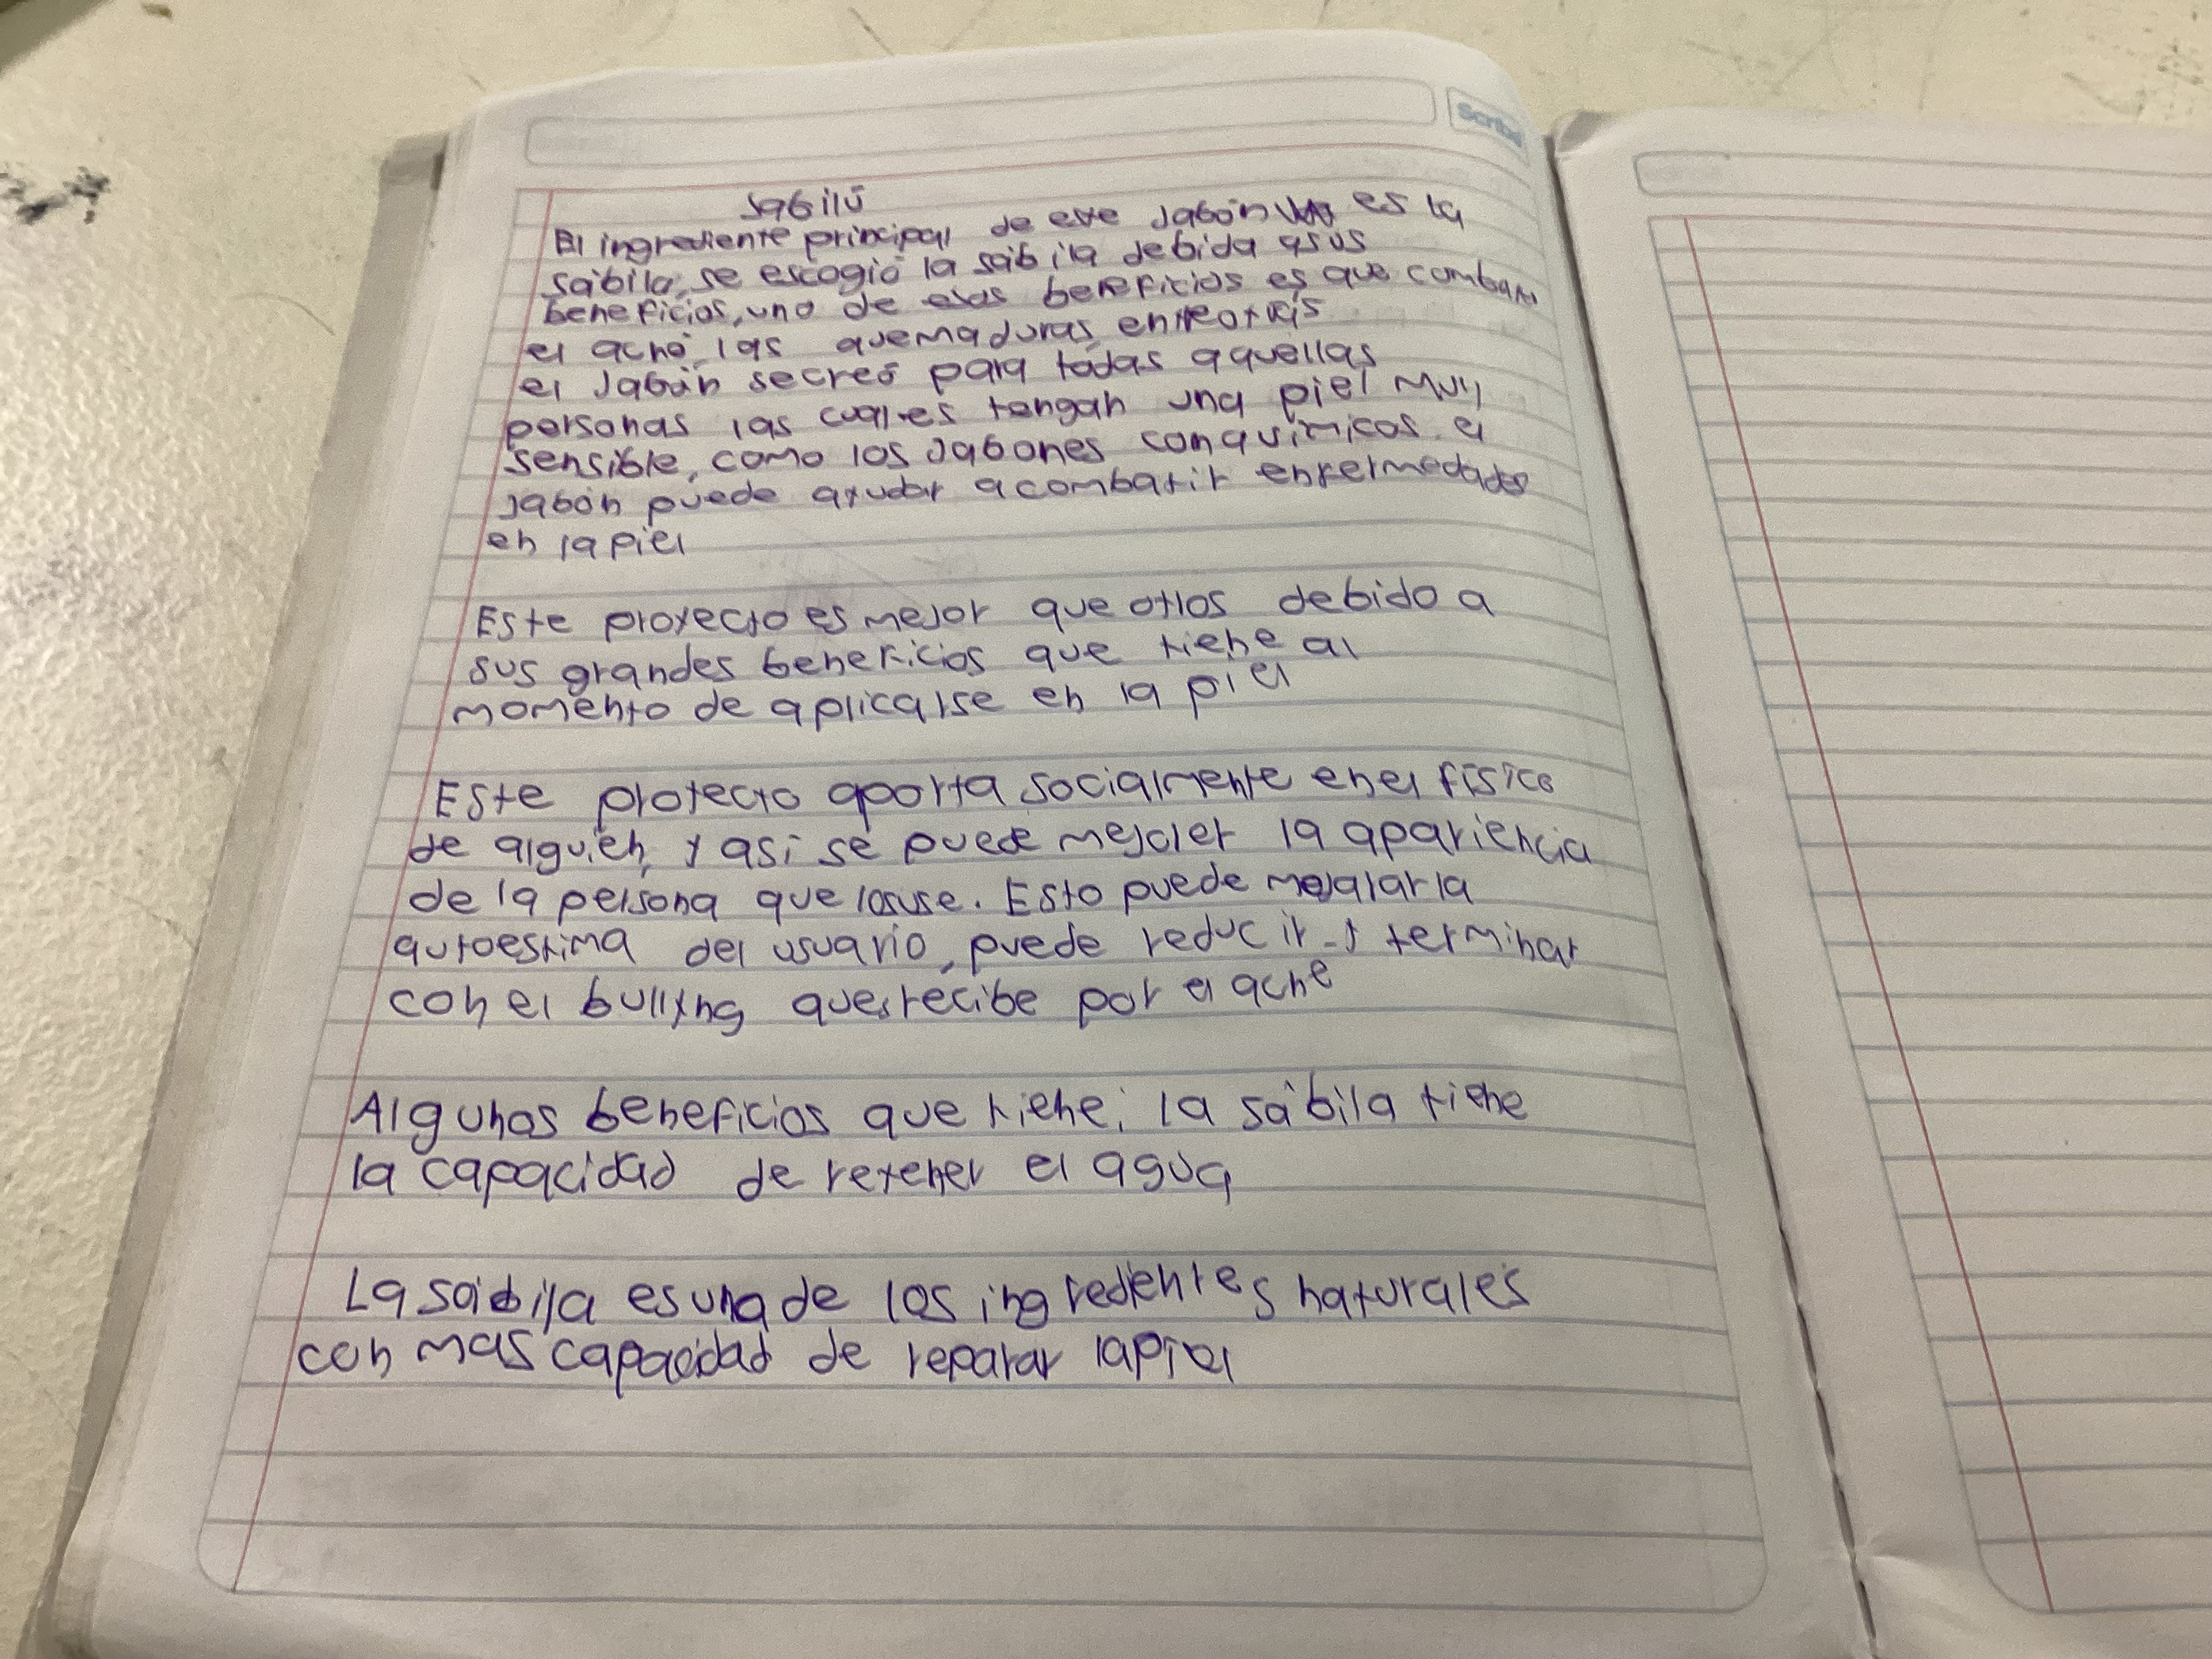 Scribe
Sabilú
El ingrediente principal de este Jabón es la
sábila, se escogió la sábila debida a sus
beneficios, uno de esos beneficios es que combate
el acné, las quemaduras, entre otras
el Jabón se creó para todas aquellas
personas las cuales tengan una piel muy
sensible, como los Jabones con químicos. el
Jabón puede ayudar a combatir enfermedades
en la piel
Este proyecto es mejor que otros debido a
sus grandes beneficios que tiene al
momento de aplicarse en la piel
Este proyecto aporta socialmente en el físico
de alguien, y así se puede mejorer la apariencia
de la persona que lo use. Esto puede la
autoestima del usuario, puede reducir y terminar
con el bullyng que recibe por el acne
Algunos beneficios que tiene: la sábila tiene
la capacidad de retener el agua
La sábila es una de los ingredientes naturales
con mas capacidad de reparar la piel